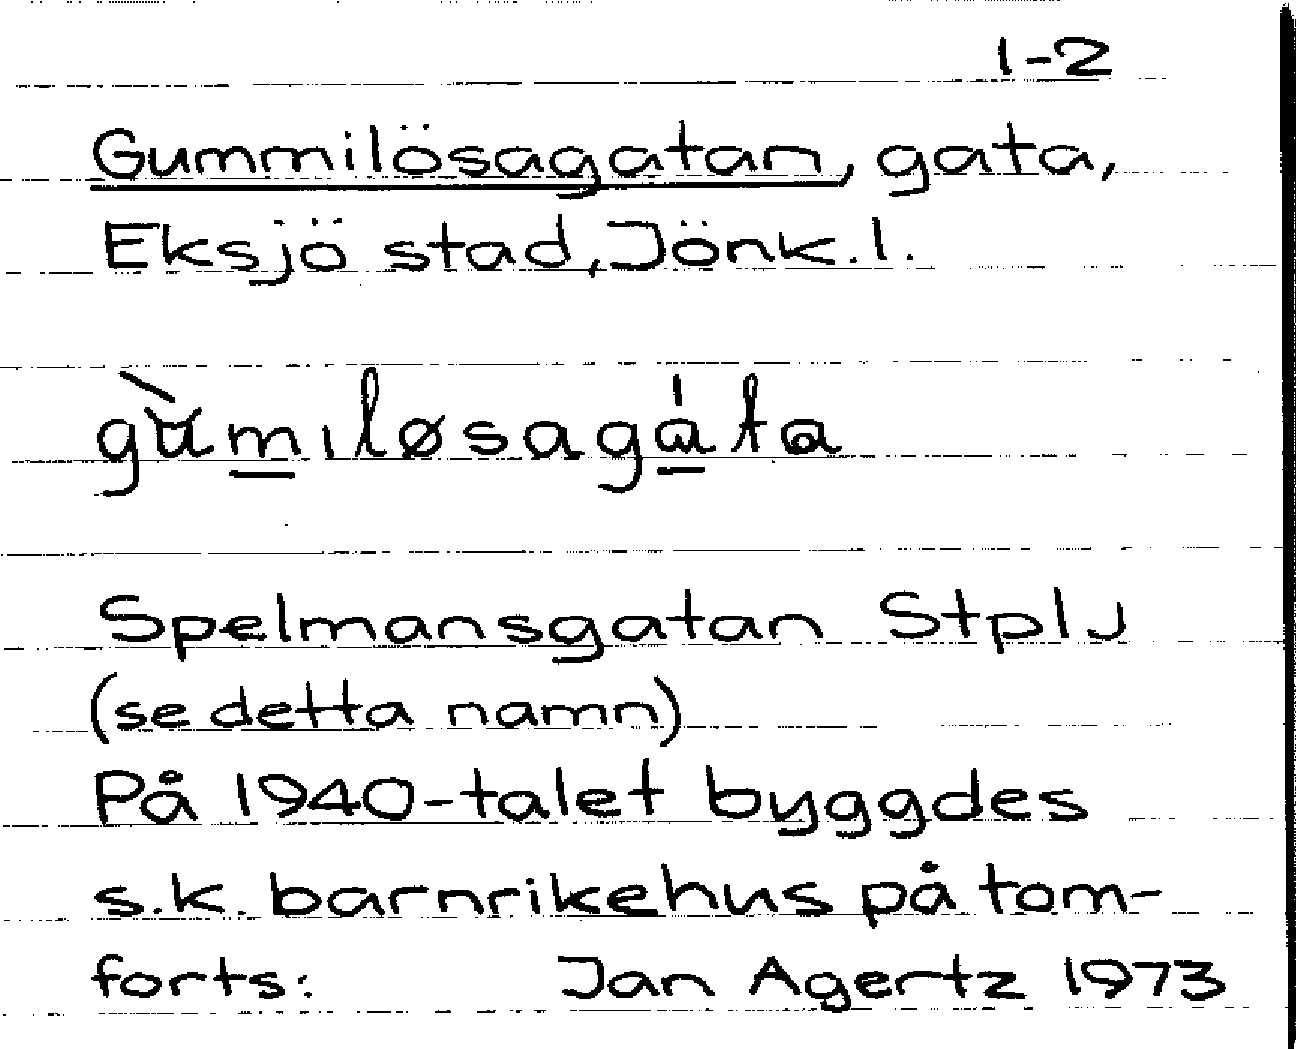 1-2
Gummilösagatan, gata,
Eksjö stad, Jönk.l.
gùmıløsagáta
Spelmansgatan StplJ
(se detta namn)
På 1940-talet byggdes
s.k. barnrikehus på tom-
forts: Jan Agertz 1973